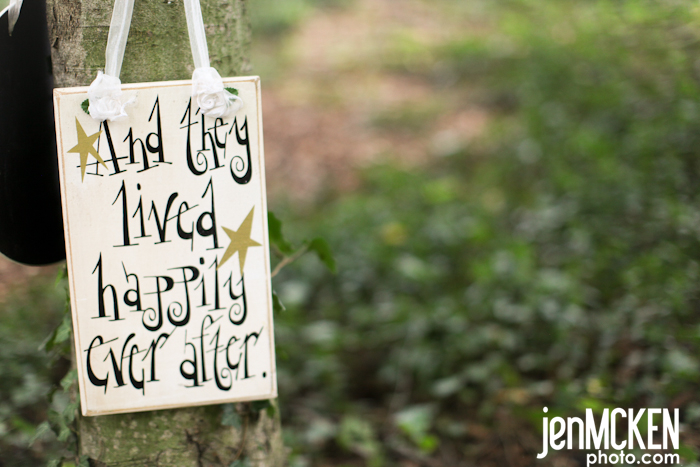 And they
lived
happily
ever after.
jenMCKEN
photo.com